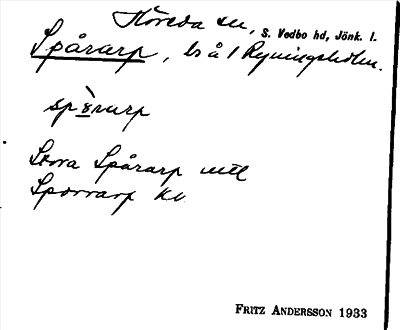 Höreda sn, S. Vedbo hd, Jönk. l.
Spårarp, bs å 1 Ryningsholm.
spårarp
Stora Spårarp uttl
Sporrarp Kv
FRITZ ANDERSSON 1933